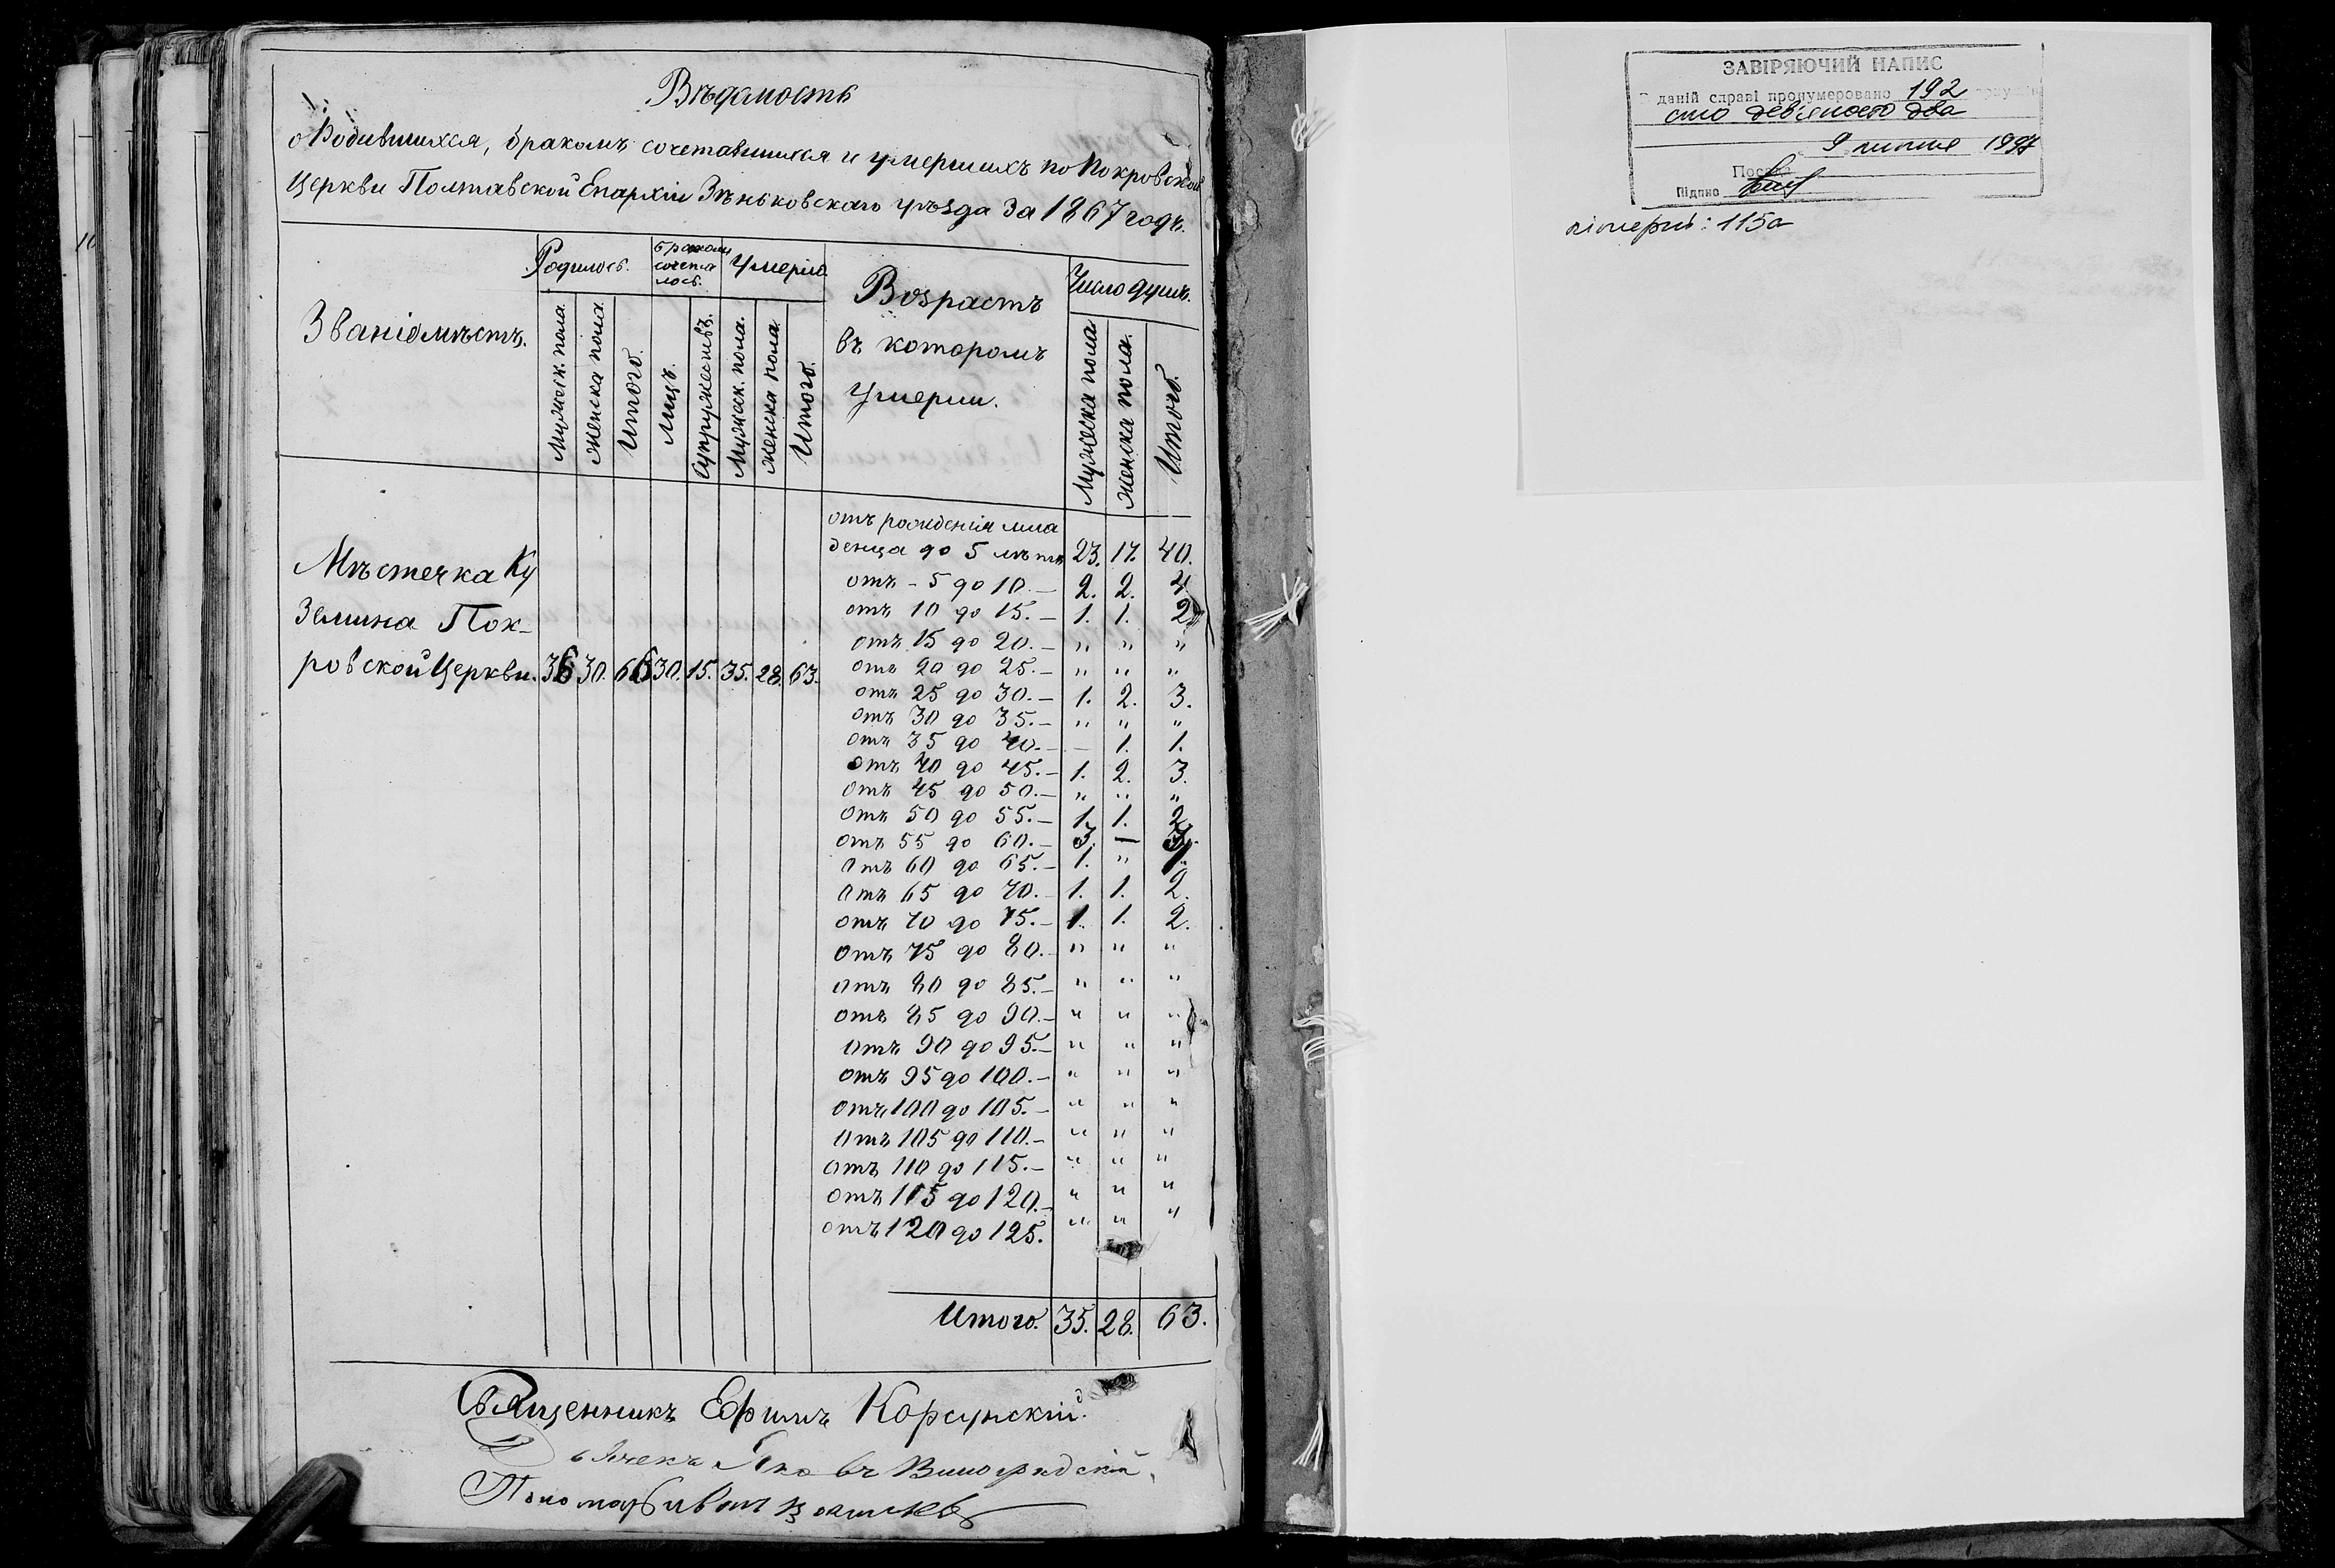 Вѣдомость
о Родившихся, бракомъ сочетавшихся и умершихъ по Покровской
Церкви Полтавской Епархіи Зѣньковскаго уѣзда За 1867 годъ.
Званіе мѣстъ.
Родилось.
бракомъ
сочета
лось.
Умерло.
Возрастъ
въ которомъ
умерли.
Число душъ.
Мужеск. пола.
Женска пола.
Итого.
Лицъ.
Супружествъ.
Мужеск. пола.
Женска пола.
Итого.
Мужеска пола
Женска пола.
Итого.
Мѣстечка Ку
Земина Пок-
ровской Церкви. 36 30. 66 30. 15. 35. 28. 63.
отъ рожденія мла
денца до 5 лѣтъ 23. 17. 40.
отъ - 5 до 10. — 2. 2. 4
отъ 10 до 15. — 1. 1. 2
отъ 15 до 20. — " " "
отъ 20 до 25. — " " "
отъ 25 до 30. — 1. 2. 3.
отъ 30 до 35. — " " "
отъ 35 до 40. — — 1. 1.
отъ 40 до 45. — 1. 2. 3.
отъ 45 до 50. — " " "
отъ 50 до 55. — 1. 1. 2
отъ 55 до 60. — 3. — 3.
отъ 60 до 65. — 1. " 1.
отъ 65 до 70. — 1. 1. 2.
отъ 70 до 75. — 1. 1. 2.
отъ 75 до 80. — " " "
отъ 80 до 85. — " " "
отъ 85 до 90. — " " "
отъ 90 до 95. — " " "
отъ 95 до 100. — " " "
отъ 100 до 105. — " " "
отъ 105 до 110. — " " "
отъ 110 до 115. — " " "
отъ 115 до 120. — " " "
отъ 120 до 125. " " "
Итого. 35. 28. 63.
Священникъ Ефимъ Корсунскій.
Дьячекъ Яковъ Виноградскій.
Пономарь Иванъ
ЗАВІРЯЮЧИЙ НАПИС
В даній справі пронумеровано 192
сто дев'яносто два
9 липня 1997
Посада
Підпис
літерні: 115а